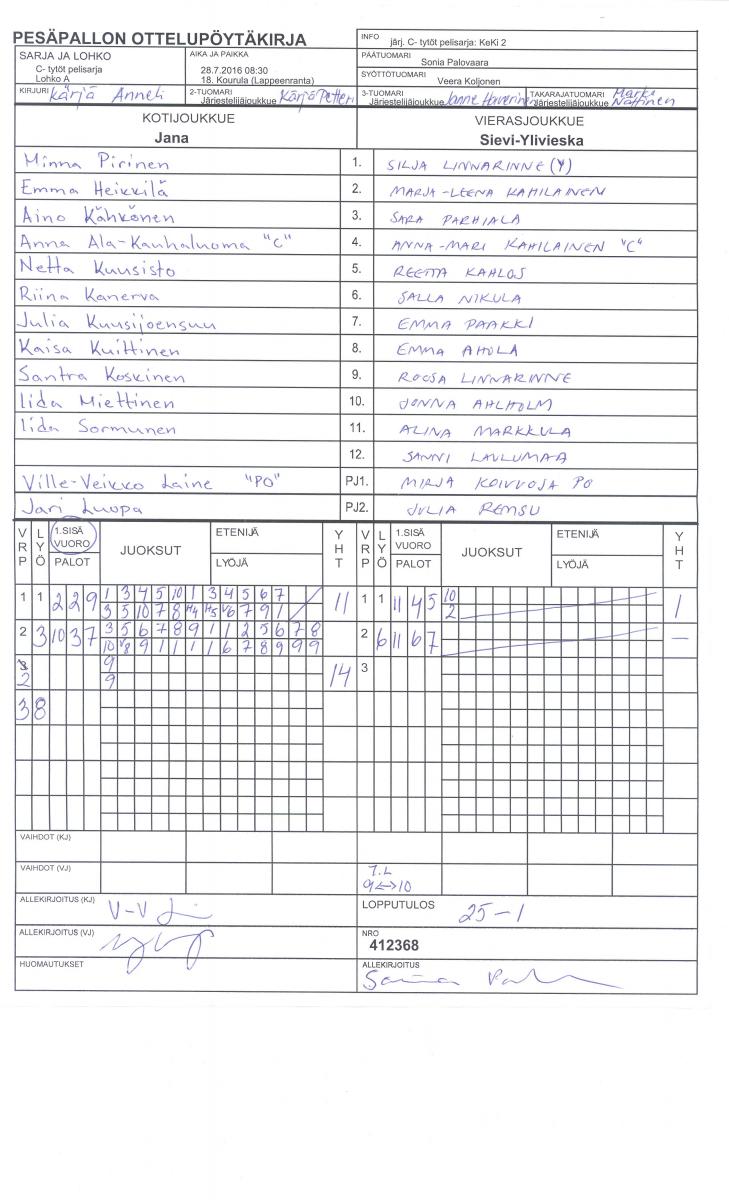 PESÄPALLON OTTELUPÖYTÄKIRJA
INFO järj. C- tytöt pelisarja: KeKi 2
SARJA JA LOHKO
C- tytöt pelisarja
Lohko A
AIKA JA PAIKKA
28.7.2016 08:30
18. Kourula (Lappeenranta)
PÄÄTUOMARI Sonia Palovaara
SYÖTTÖTUOMARI Veera Koljonen
KIRJURI Kärjä Anneli
2-TUOMARI
Järjestelijäjoukkue Kärjä Petteri
3-TUOMARI
Järjestelijäjoukkue Janne Haverinen
TAKARAJATUOMARI
Järjestelijäjoukkue Marko Nättinen
KOTIJOUKKUE
Jana
VIERASJOUKKUE
Sievi-Ylivieska
Minna Pirinen 1. SILJA LINNARINNE (Y)
Emma Heikkilä 2. MARJA-LEENA KAHILAINEN
Aino Kähkönen 3. SARA PARHIALA
Anna Ala-Kauhaluoma "C" 4. ANNA-MARI KAHILAINEN "C"
Netta Kuusisto 5. REETTA KAHLOS
Riina Kanerva 6. SALLA NIKULA
Julia Kuusijoensuu 7. EMMA PAAKKI
Kaisa Kuittinen 8. EMMA AHOLA
Santra Koskinen 9. ROOSA LINNARINNE
Iida Miettinen 10. JONNA AHLHOLM
Iida Sormunen 11. ALINA MARKKULA
12. SANNI LAULUMAA
Ville-Veikko Laine "PO" PJ1. MIRJA KOIVUOJA PO
Jari Luopa PJ2. JULIA REMSU
VRP LYÖ 1.SISÄ VUORO PALOT JUOKSUT ETENIJÄ LYÖJÄ YHT VRP LYÖ 1.SISÄ VUORO PALOT JUOKSUT ETENIJÄ LYÖJÄ YHT
1 1 2 2 9 1 3 4 5 10 1 3 4 5 6 7 11 1 1 11 4 5 10 1
3 5 10 7 8 H4 H5 V6 7 9 1 2
2 3 10 3 7 3 5 6 7 8 9 1 1 2 5 6 7 8 2 6 11 6 7 —
10 V8 9 1 1 1 1 6 7 8 9 9 9
2 9 14 3
9
3 8
VAIHDOT (KJ)
VAIHDOT (VJ) 7.L
9<->10
ALLEKIRJOITUS (KJ) V-V
LOPPUTULOS 25-1
ALLEKIRJOITUS (VJ)
NRO
412368
HUOMAUTUKSET
ALLEKIRJOITUS